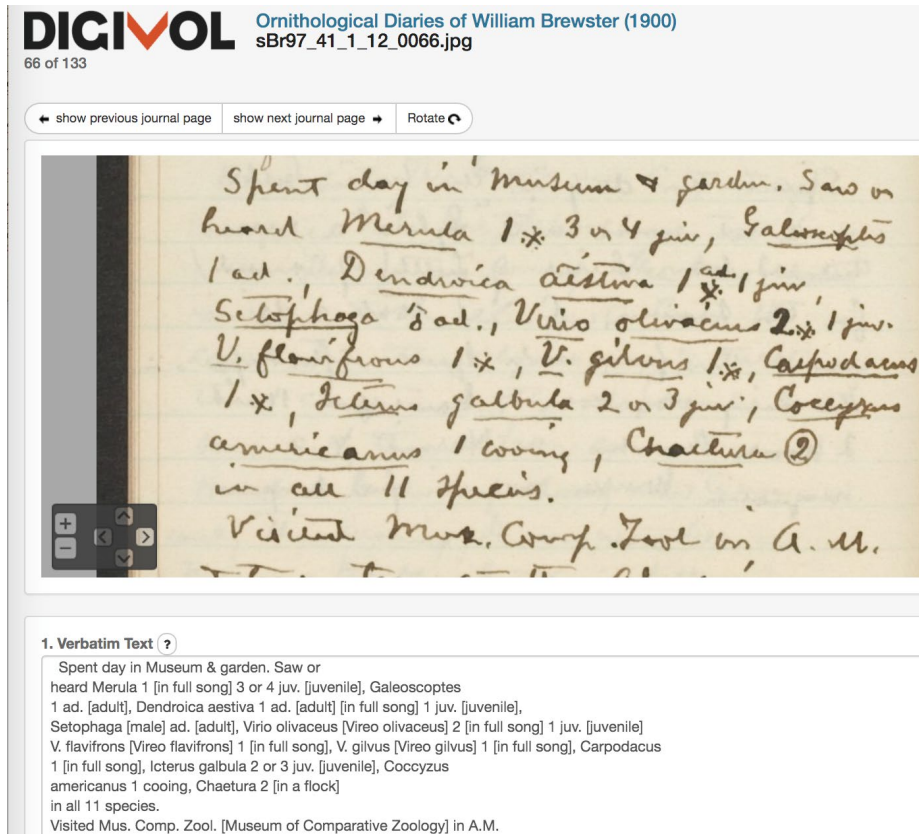 DIGIVOL
Ornithological Diaries of William Brewster (1900)
sBr97_41_1_12_0066.jpg
66 of 133
show previous journal page
show next journal page
Rotate
Spent day in Museum & garden. Saw or
heard Merula 1 * 3 or 4 juv, Galeoscoptes
1 ad., Dendroica aestiva 1 ad. * 1 juv,
Setophaga ♂ ad., Virio olivaceus 2 * 1 juv.
V. flavifrons 1 *, V. gilvus 1 *, Carpodacus
1 *, Icterus galbula 2 or 3 juv, Coccyzus
americanus 1 cooing, Chaetura 2
in all 11 species.
Visited Mus. Comp. Zool in A.M.
1. Verbatim Text ?
Spent day in Museum & garden. Saw or
heard Merula 1 [in full song] 3 or 4 juv. [juvenile], Galeoscoptes
1 ad. [adult], Dendroica aestiva 1 ad. [adult] [in full song] 1 juv. [juvenile],
Setophaga [male] ad. [adult], Virio olivaceus [Vireo olivaceus] 2 [in full song] 1 juv. [juvenile]
V. flavifrons [Vireo flavifrons] 1 [in full song], V. gilvus [Vireo gilvus] 1 [in full song], Carpodacus
1 [in full song], Icterus galbula 2 or 3 juv. [juvenile], Coccyzus
americanus 1 cooing, Chaetura 2 [in a flock]
in all 11 species.
Visited Mus. Comp. Zool. [Museum of Comparative Zoology] in A.M.